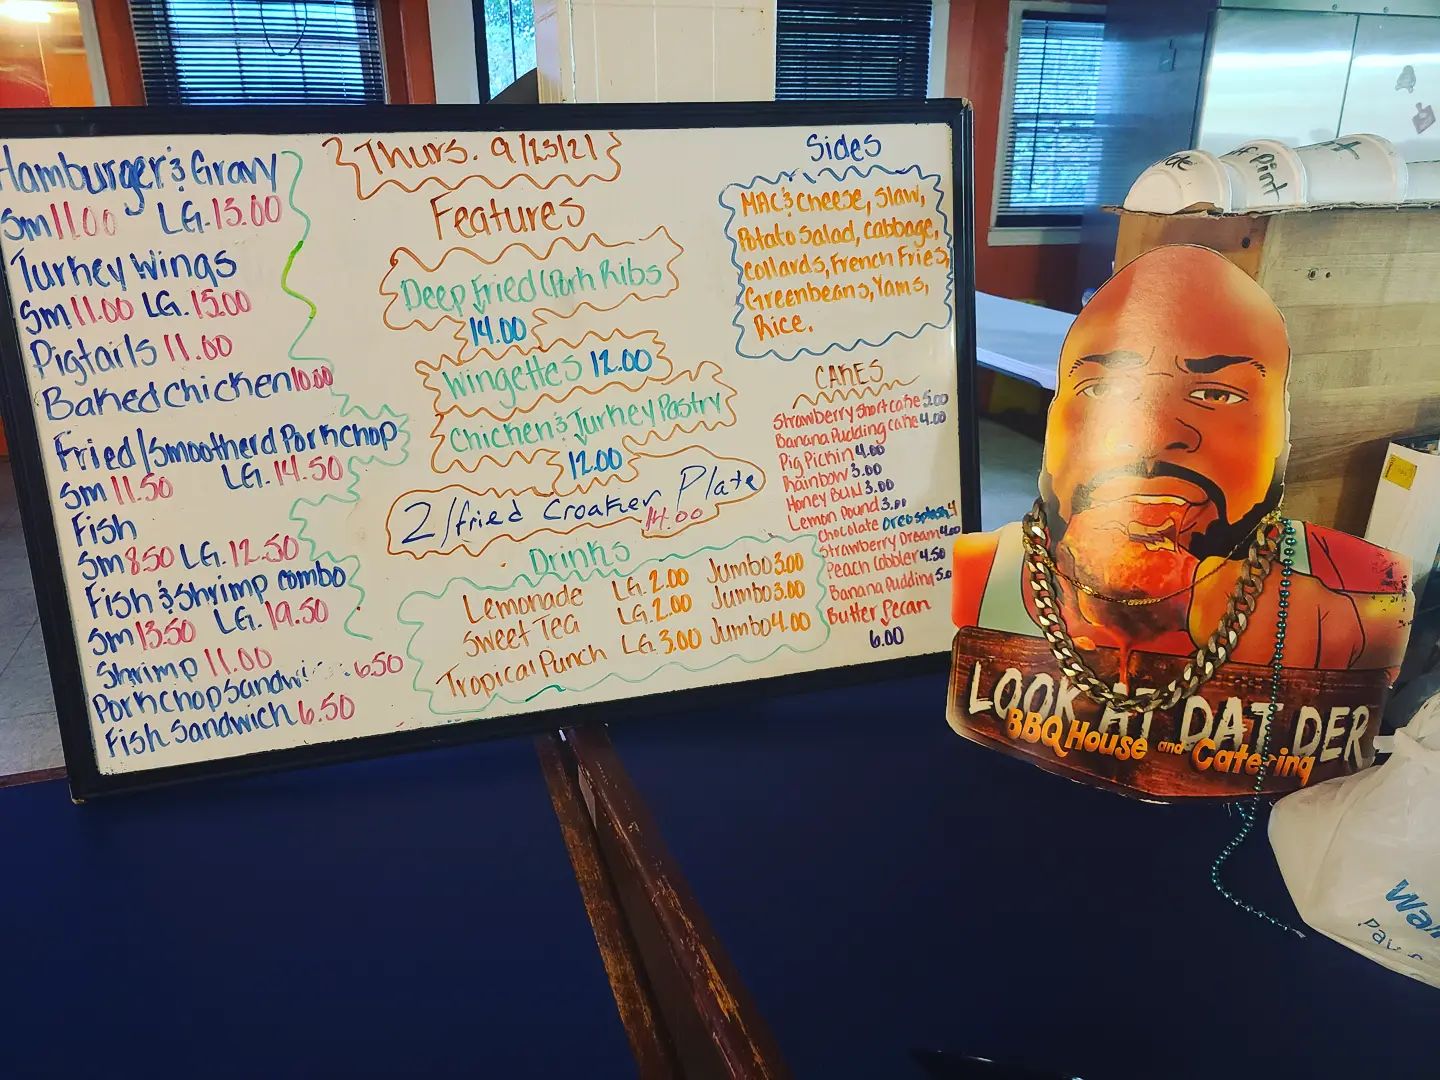 Hamburger & Gravy
Sm 11.00 LG. 15.00
Turkey Wings
Sm 11.00 LG. 15.00
Pigtails 11.00
Baked Chicken 10.00
Fried/Smootherd Porkchop
Sm 11.50 LG. 14.50
Fish
Sm 8.50 LG. 12.50
Fish & Shrimp combo
Sm 13.50 LG. 19.50
Shrimp 11.00
Porkchop Sandwi 6.50
Fish Sandwich 6.50
Thurs. 9/23/21
Features
Deep Fried Pork Ribs
14.00
Wingettes 12.00
Chicken & Turkey Pastry
12.00
2/fried Croaker Plate
14.00
Drinks
Lemonade LG. 2.00 Jumbo 3.00
Sweet Tea LG. 2.00 Jumbo 3.00
Tropical Punch LG. 3.00 Jumbo 4.00
Sides
MAC & Cheese, Slaw,
Potato Salad, Cabbage,
Collards, French Fries,
Greenbeans, Yams,
Rice.
CAKES
Strawberry Shortcake 5.00
Banana Pudding cake 4.00
Pig Pickin 4.00
Rainbow 3.00
Honey BUN 3.00
Lemon Pound 3.00
Chocolate Oreo splash 4
Strawberry Dream 4.00
Peach Cobbler 4.50
Banana Pudding 5.0
Butter Pecan
6.00
Pint
LOOK AT DAT DER
BBQ House and Catering